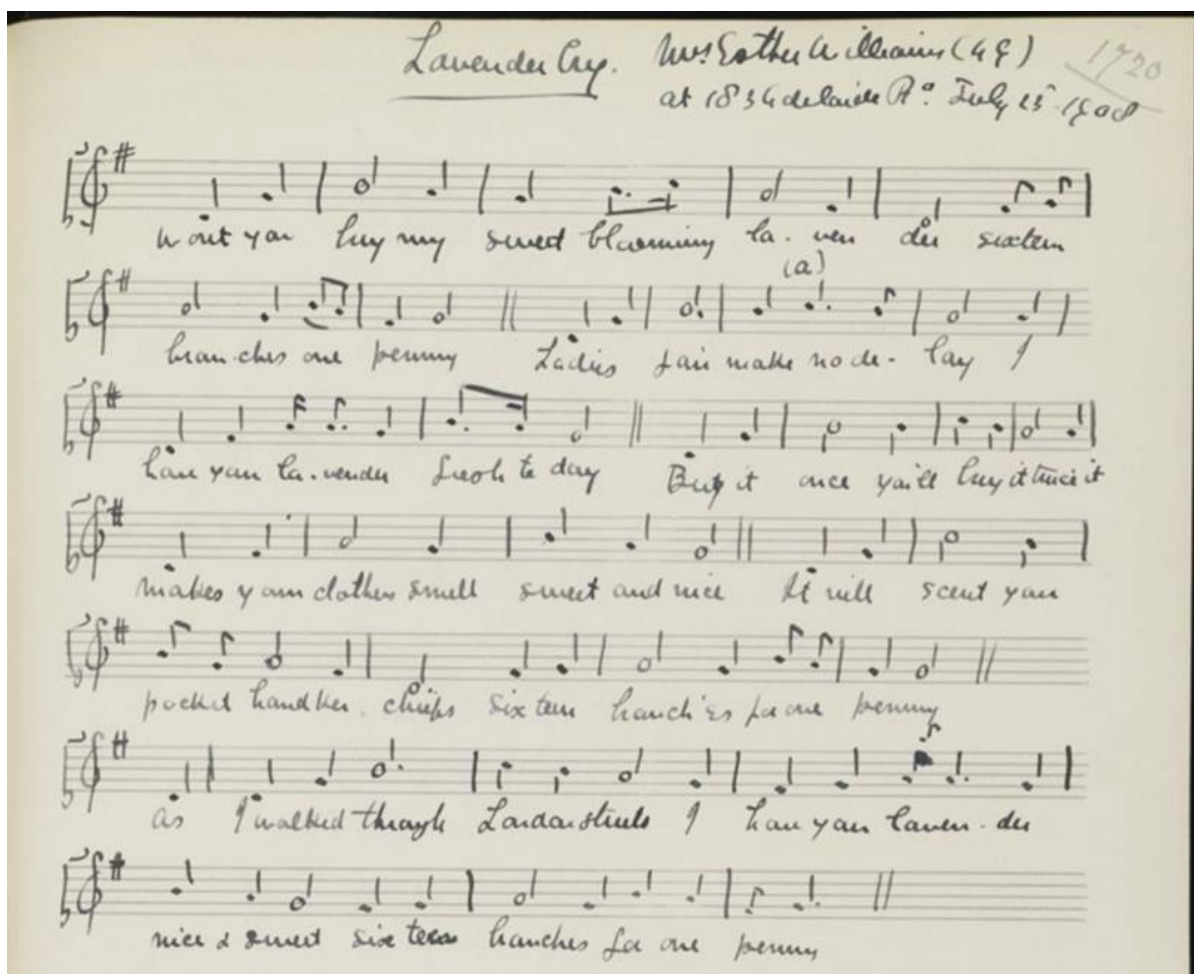 Lavender Cry. Mrs Esther Williams (49)
1720
at 183 Adelaide Rd. July 25 1908
Wont you buy my sweet blooming la-ven der sixteen
(a)
branches one penny Ladies fair make no de-lay I
have your la-vender fresh to day Buy it once you'll buy it twice it
makes your clothes smell sweet and nice It will scent your
pocket handker-chiefs sixteen branches for one penny
As I walked through London streets I have your laven-der
nice & sweet sixteen branches for one penny